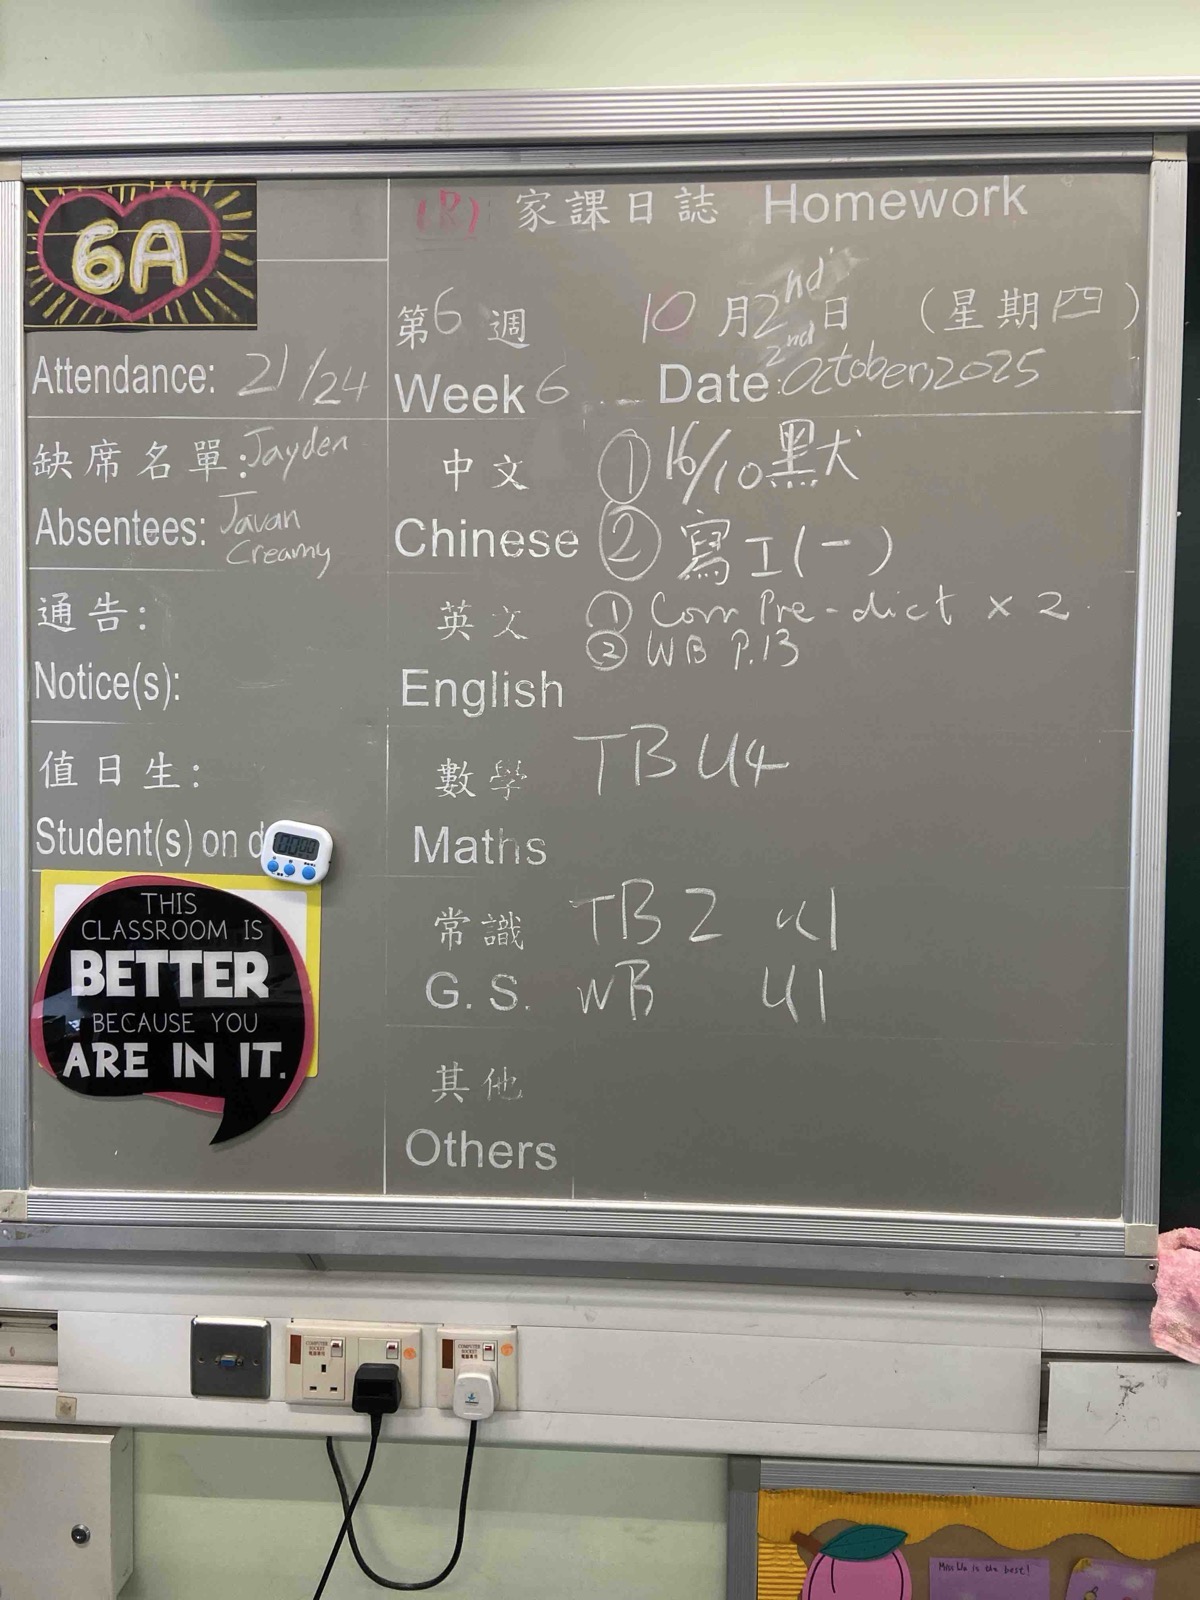 6A
(R) 家課日誌 Homework
第6週 10月2nd日 (星期四)
2nd
Week 6 Date: October, 2025
Attendance: 21/24
缺席名單: Jayden
Absentees: Javan
Creamy
通告:
Notice(s):
值日生:
Student(s) on d
00:00
THIS
CLASSROOM IS
BETTER
BECAUSE YOU
ARE IN IT.
中文 ① 16/10 默
Chinese ② 寫工(一)
英文 ① Corr Pre-dict x 2
② WB P.13
English
數學 TB U4
Maths
常識 TB 2 U1
G. S. WB U1
其他
Others
COMPUTER
SOCKET
COMPUTER
SOCKET
COMPUTER
SOCKET
Miss Liu is the best!